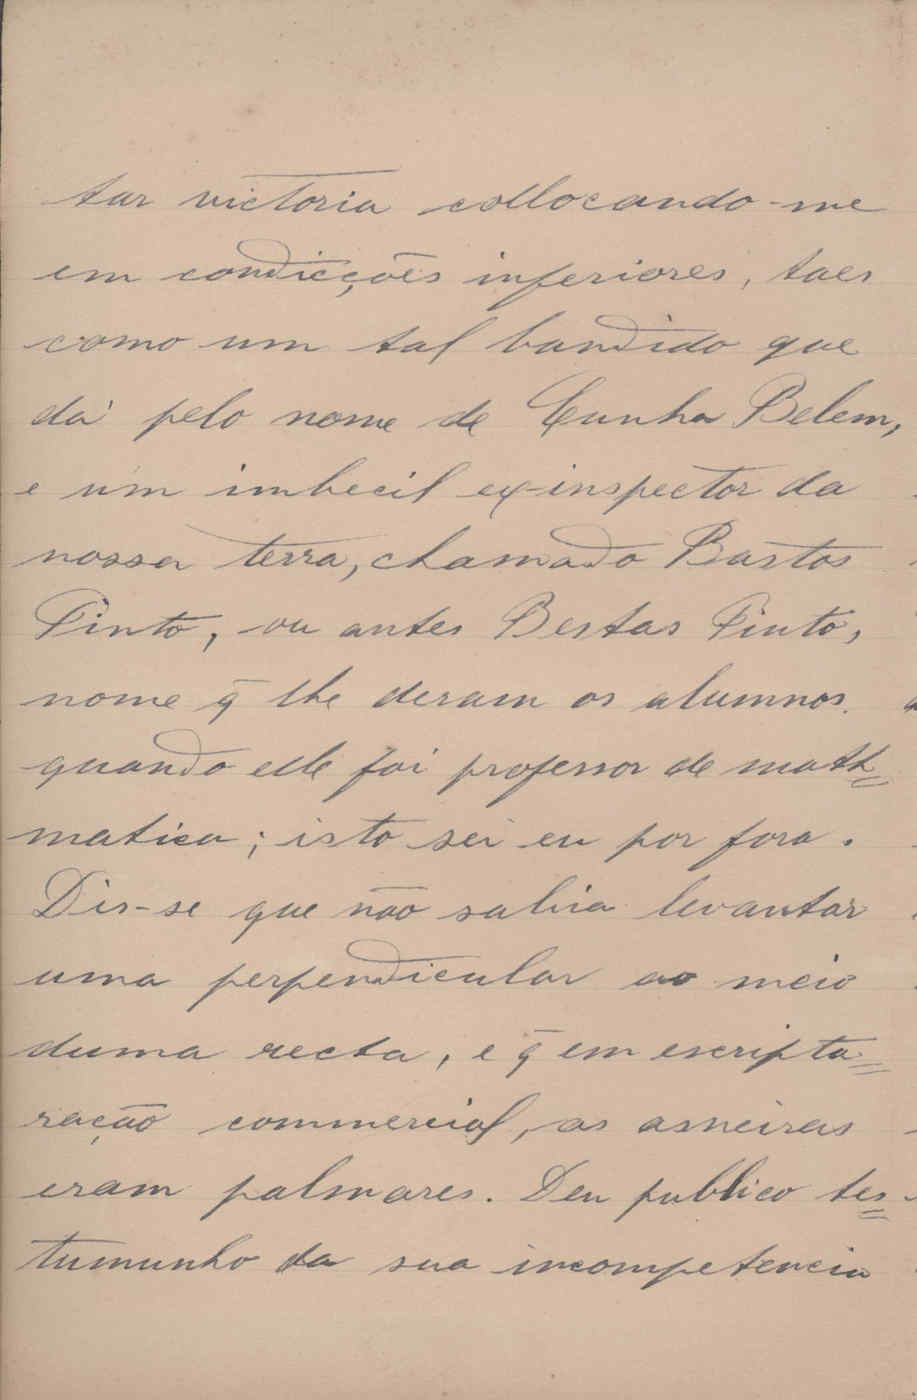 tar victoria collocando-me
em condicções inferiores, taes
como um tal bandido que
dá pelo nome de Cunha Belem,
e um imbecil ex-inspector da
nossa terra, chamado Bastos
Pinto, ou antes Bestas Pinto,
nome q̄ lhe deram os alumnos
quando elle foi professor de math=
matica; isto sei eu por fora.
Dis-se que não sabia levantar
uma perpendicular ao meio
duma recta, e q̄ em escriptu=
ração commercial, as asneiras
eram palmares. Deu publico tes=
tumunho da sua incompetencia